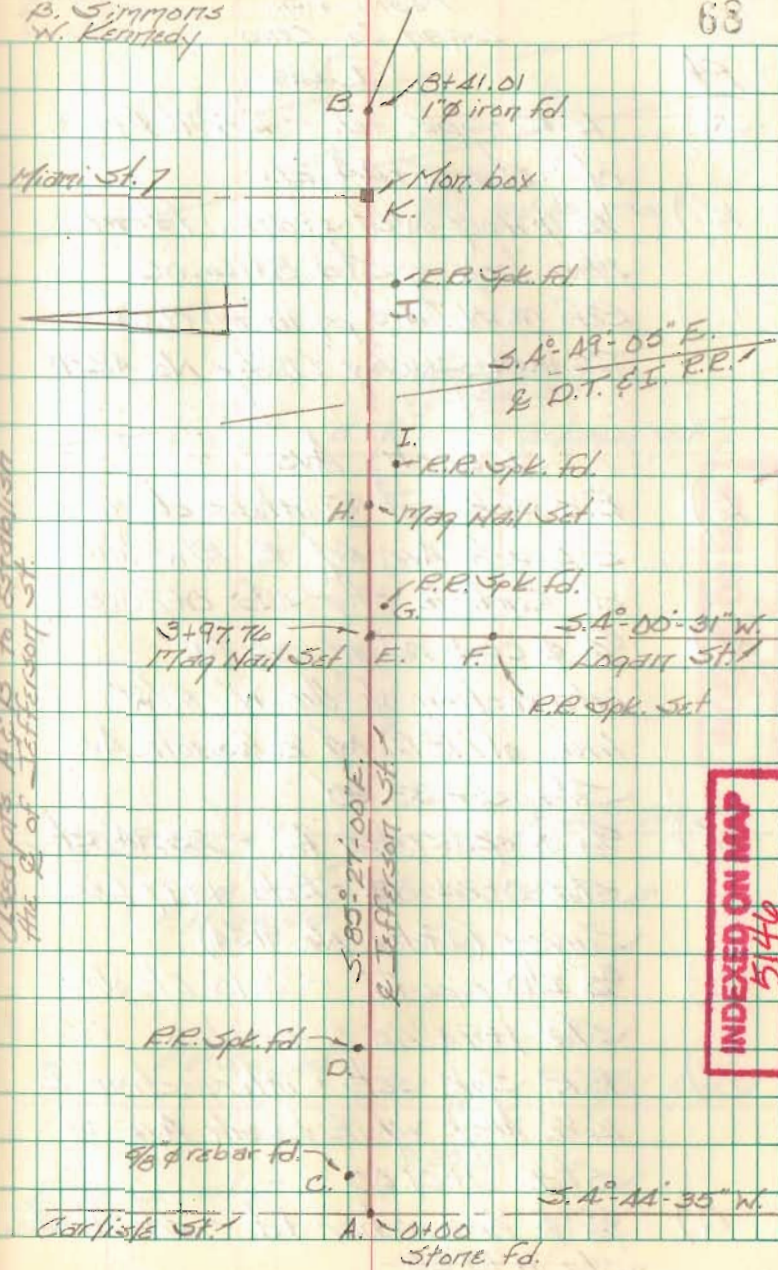 B. Simmons
W. Kennedy
68
8+41.01
B.
1"ø iron fd.
Miami St.
Mon. box
K.
R.R. Spk. fd.
J.
S.4°-49'-05" E.
℄ D.T. & I. R.R.
I.
R.R. Spk. fd.
H.
Mag Nail Set
R.R. Spk. fd.
G.
3+97.76
S.4°-00'-31" W.
Mag Nail Set
E.
F.
Logan St.
R.R. Spk. Set
Used pts A & B to establish
the ℄ of Jefferson St.
S.85°-27'-00"E.
℄ Jefferson St.
INDEXED ON MAP
5146
R.R. Spk. fd.
D.
5/8"ø rebar fd.
C.
S.4°-44'-35" W.
Carlisle St.
A.
0+00
Stone fd.